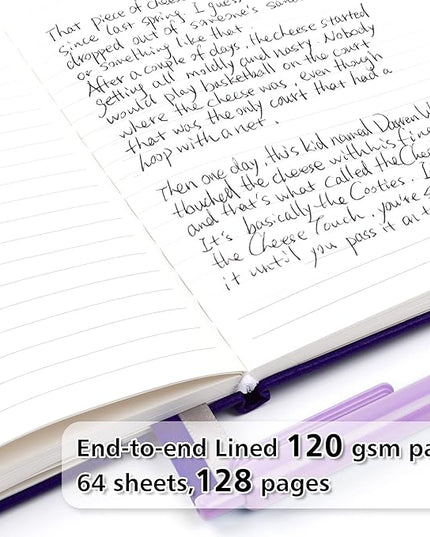 That piece of cheese
since last spring. I guess
dropped out of someone's sand
or something like that.
After a couple of days, the cheese started
getting all moldly and nasty. Nobody
would play basketball on the court
where the cheese was, even though
that was the only court that had a
hoop with a net.
Then one day, this kid named Darren W
touched the cheese with his fing
and that's what called the Chees
It's basically the Cooties. I
the Cheese Touch, you're s
it until you pass it on t
End-to-end Lined 120 gsm pa
64 sheets,128 pages